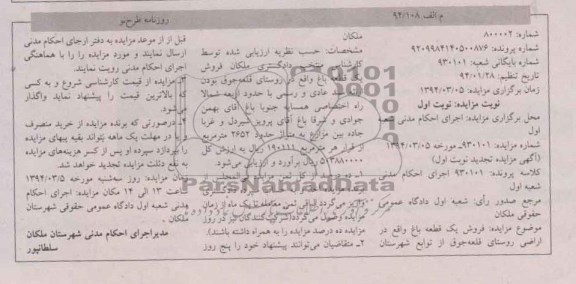 م الف ۹۴/۱۰۸
روزنامه طرح نو
شماره: ۸۰۰۰۰۲
شماره پرونده: ۹۲۰۹۹۸۴۱۴۰۵۰۰۸۷۶
شماره بایگانی شعبه: ۹۳۰۱۰۱
تاریخ تنظیم: ۹۲/۰۱/۲۸
زمان برگزاری مزایده: ۱۳۹۴/۰۳/۰۵
نوبت مزایده: نوبت اول
محل برگزاری مزایده: اجرای احکام مدنی شعبه
اول
شماره مزایده: ۹۳۰۱۰۱ مورخه ۱۳۹۴/۰۳/۰۵
(آگهی مزایده تجدید نوبت اول)
کلاسه پرونده: ۹۳۰۱۰۱ اجرای احکام مدنی
شعبه اول
مرجع صدور رأی: شعبه اول دادگاه عمومی
حقوقی ملکان
موضوع مزایده: فروش یک قطعه باغ واقع در
اراضی روستای قلعه‌جوق از توابع شهرستان
ملکان
مشخصات: حسب نظریه ارزیابی شده توسط
کارشناس دادگستری ملکان فروش
قطعه باغ واقع در روستای قلعه‌جوق بودن
عادی و رسمی با حدود اربعه شمالا
راه اختصاصی همسایه جنوبا باغ آقای بهمن
جوادی و شرقا باغ آقای پرویز شیردل و غربا
جاده بین مزارع به متراژ حدود ۲۶۵۲ مترمربع
از قرار هر مترمربع ۱۹۰۱۱۱ ریال به ارزش کل
ریال برآورد و ارزیابی می‌شود.
۱ـ ده درصد از کل ثمن مزایده فی‌المجلس از
مزایده وصول می‌گردد (شرکت‌کنندگان در روز
مزایده ده درصد مزایده را به همراه داشته باشند).
۲ـ متقاضیان می‌توانند پیشنهاد خود را پنج روز
قبل از از موعد مزایده به دفتر اجرای احکام مدنی
ارسال نمایند و مورد مزایده را با هماهنگی
اجرای احکام مدنی رویت نمایند.
۳ـ مزایده از قیمت کارشناسی شروع و به کسی
که بالاترین قیمت را پیشنهاد نماید واگذار
می‌شود.
۴ـ درصورتی که برنده مزایده از خرید منصرف
و یا در مهلت یک ماهه نتواند بقیه بهای مزایده
را بپردازد سپرده او پس از کسر هزینه‌های مزایده
به نفع دولت مزایده تجدید خواهد شد.
زمان مزایده: روز سه‌شنبه مورخه ۱۳۹۴/۰۳/۵
ساعت ۱۳ الی ۱۴ مکان مزایده: اجرای احکام
مدنی شعبه اول دادگاه عمومی حقوقی شهرستان
ملکان.
مدیراجرای احکام مدنی شهرستان ملکان
سلطانپور
ParsNamadData